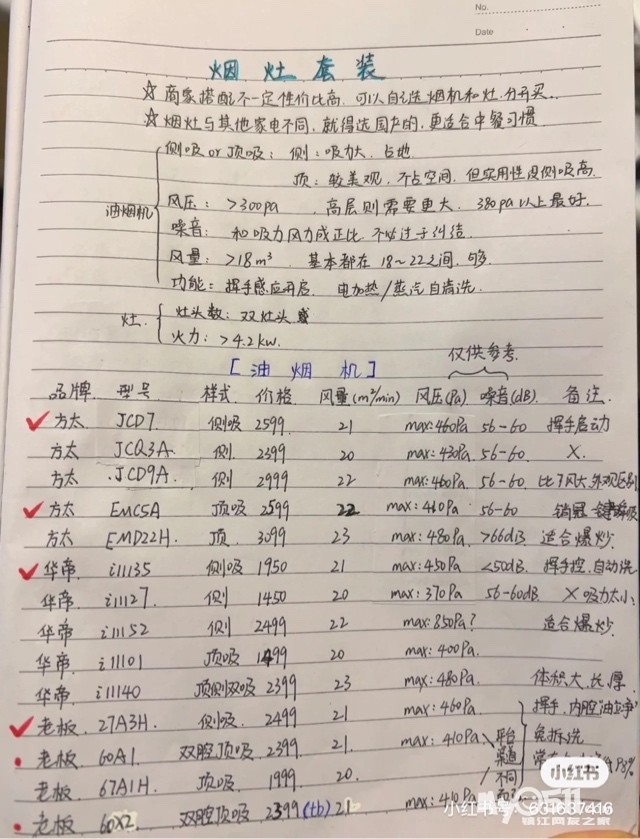 No.
Date
烟灶套装
☆ 商家搭配不一定性价比高，可以自己选烟机和灶，分开买．
☆ 烟灶与其他家电不同，就得选国产的，更适合中餐习惯
油烟机
侧吸 or 顶吸：侧：吸力大，占地
顶：较美观，不占空间，但实用性没侧吸高．
风压：>300pa，高层则需要更大，380pa以上最好．
噪音：和吸力风力成正比，不必过于纠结．
风量：>18m³，基本都在18~22之间，够．
功能：挥手感应开启，电加热/蒸汽自清洗．
灶．
灶头数：双灶头
火力：>4.2kw．
[油烟机]
仅供参考．
品牌 型号 样式 价格 风量(m³/min) 风压(Pa) 噪音(dB) 备注
✓ 方太 JCD7 侧吸 2599 21 max:460Pa 56-60 挥手启动
方太 JCQ3A 侧 2399 20 max:430Pa 56-60 X．
方太 JCD9A 侧 2999 22 max:460Pa 56-60 比7风大，外观区别
✓ 方太 EMC5A 顶吸 2599 22 max:410Pa 56-60 销冠
方太 EMD22H 顶 3099 23 max:480Pa >66dB 适合爆炒
✓ 华帝 i11135 侧吸 1950 21 max:450Pa <50dB 挥手控，自动洗
华帝 i11127 侧 1450 20 max:370Pa 56-60dB X 吸力太小
华帝 i11152 侧 2499 22 max:850Pa? 适合爆炒
华帝 i11101 顶吸 1499 20 max:400Pa．
华帝 i11140 顶侧双吸 2399 23 max:480Pa 体积大，长厚
✓ 老板 27A3H 侧吸 2499 21 max:460Pa 挥手，内腔油立净
• 老板 60A1 双腔顶吸 2399 21 max:410Pa 免拆洗
平台渠道不同
老板 67A1H 顶吸 1999 20
• 老板 60X2 双腔顶吸 2399(tb) 21 max:410Pa
小红书
小红书号：631637416
镇江网友之家